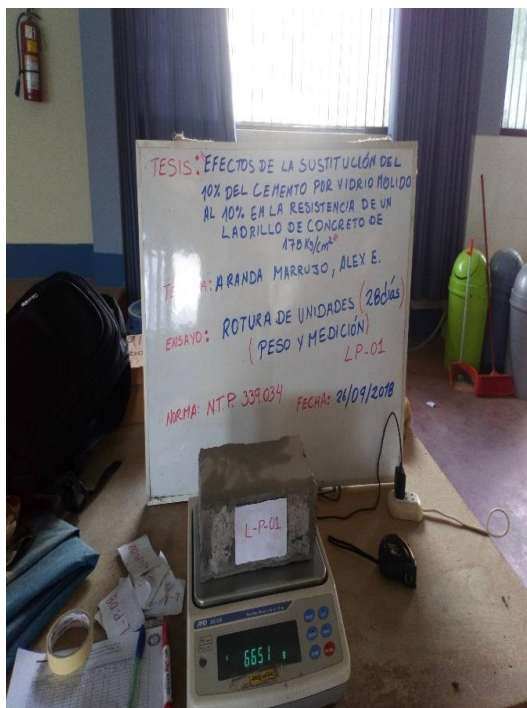 TESIS: EFECTOS DE LA SUSTITUCIÓN DEL
10% DEL CEMENTO POR VIDRIO MOLIDO
AL 10% EN LA RESISTENCIA DE UN
LADRILLO DE CONCRETO DE
175 Kg/cm²"
: ARANDA MARRUJO, ALEX E.
ENSAYO: ROTURA DE UNIDADES (28días)
(PESO Y MEDICIÓN)
LP-01
NORMA: N.T.P. 339.034 FECHA: 26/09/2018
L-P-01
L-P-08
AND
6651 g